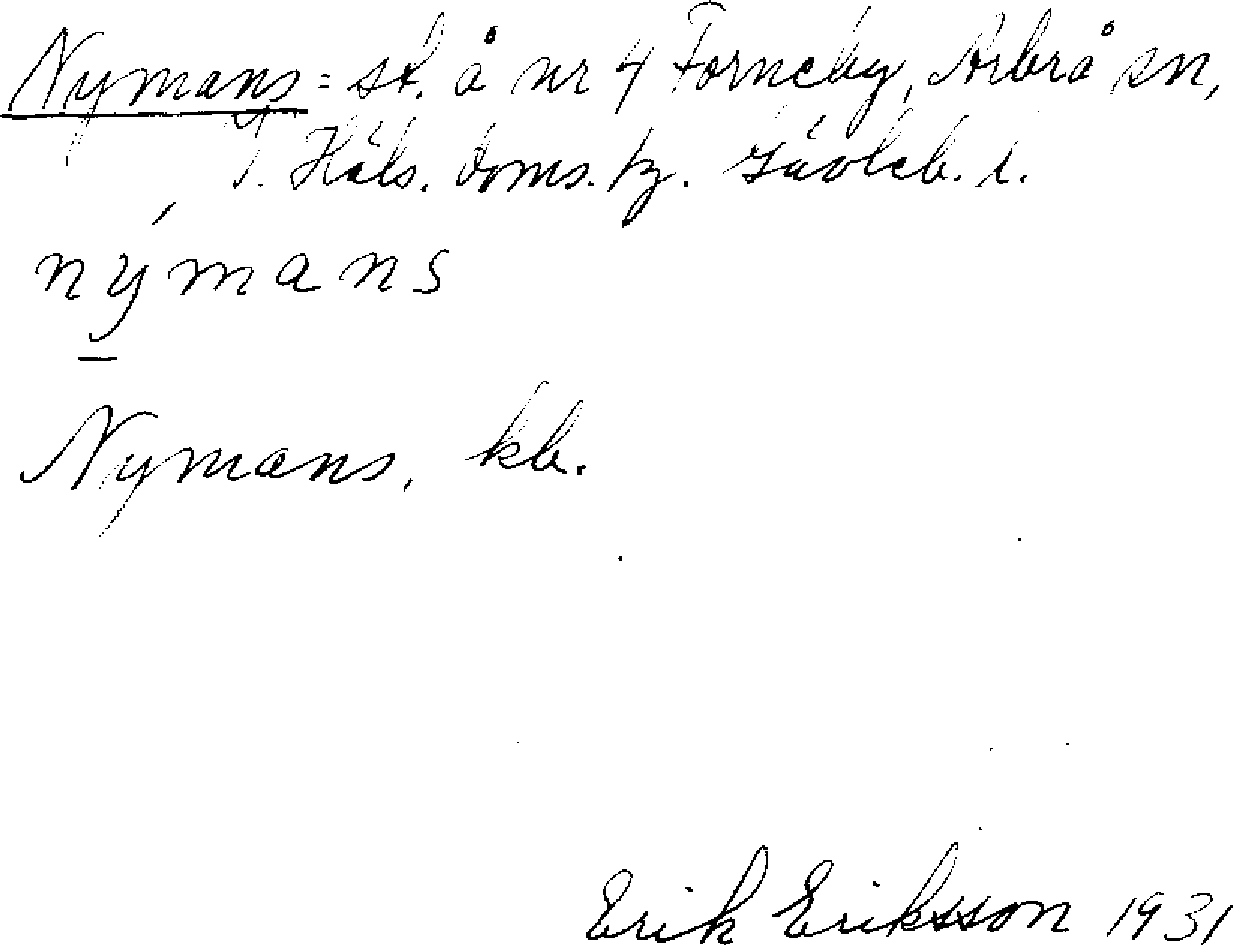 Nymans = st. å nr 4 Forneby, Arbrå sn,
V. Häls. doms. tz. Gävleb. l.
nýmans
Nymans, kb.
Erik Eriksson 1931